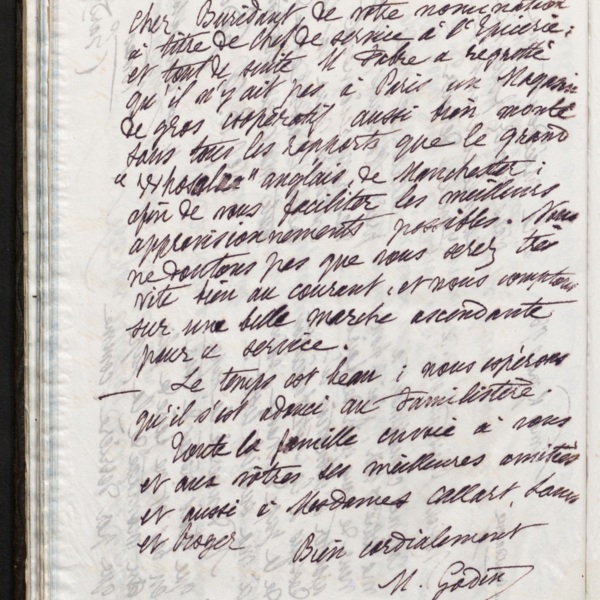 cher Buridant de votre nomination
à titre de chef de service à l'Epicerie ;
et tout de suite M. Fabre a regretté
qu'il n'y ait pas à Paris un Magasin
de gros coopératif aussi bien monté
sous tous les rapports que le grand
anglais de Manchester ;
afin de vous faciliter les meilleurs
approvisionnements possibles. Nous
ne doutons pas que vous serez très
vite bien au courant, et nous comptons
sur une belle marche ascendante
pour ce service.
Le temps est beau ; nous espérons
qu'il s'est adouci au Familistère.
Toute la famille envoie à vous
et aux vôtres ses meilleures amitiés
et aussi à Mesdames Callart,
et Roger
Bien cordialement
M. Godin